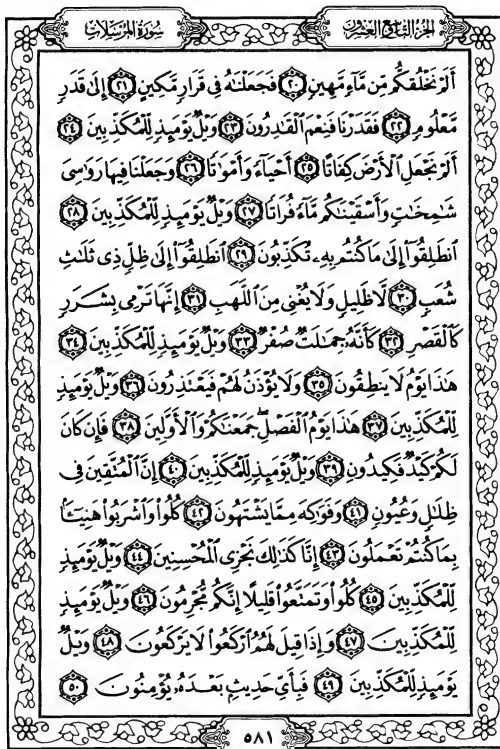 الجزء التاسع والعشرون
سورة المرسلات
أَلَمْ نَخْلُقكُّم مِّن مَّآءٍ مَّهِينٍ ٢٠ فَجَعَلْنَٰهُ فِى قَرَارٍ مَّكِينٍ ٢١ إِلَىٰ قَدَرٍ
مَّعْلُومٍ ٢٢ فَقَدَرْنَا فَنِعْمَ ٱلْقَٰدِرُونَ ٢٣ وَيْلٌ يَوْمَئِذٍ لِّلْمُكَذِّبِينَ ٢٤
أَلَمْ نَجْعَلِ ٱلْأَرْضَ كِفَاتًا ٢٥ أَحْيَآءً وَأَمْوَٰتًا ٢٦ وَجَعَلْنَا فِيهَا رَوَٰسِىَ
شَٰمِخَٰتٍ وَأَسْقَيْنَٰكُم مَّآءً فُرَاتًا ٢٧ وَيْلٌ يَوْمَئِذٍ لِّلْمُكَذِّبِينَ ٢٨
ٱنطَلِقُوٓا۟ إِلَىٰ مَا كُنتُم بِهِۦ تُكَذِّبُونَ ٢٩ ٱنطَلِقُوٓا۟ إِلَىٰ ظِلٍّ ذِى ثَلَٰثِ
شُعَبٍ ٣٠ لَّا ظَلِيلٍ وَلَا يُغْنِى مِنَ ٱللَّهَبِ ٣١ إِنَّهَا تَرْمِى بِشَرَرٍ
كَٱلْقَصْرِ ٣٢ كَأَنَّهُۥ جِمَٰلَتٌ صُفْرٌ ٣٣ وَيْلٌ يَوْمَئِذٍ لِّلْمُكَذِّبِينَ ٣٤
هَٰذَا يَوْمُ لَا يَنطِقُونَ ٣٥ وَلَا يُؤْذَنُ لَهُمْ فَيَعْتَذِرُونَ ٣٦ وَيْلٌ يَوْمَئِذٍ
لِّلْمُكَذِّبِينَ ٣٧ هَٰذَا يَوْمُ ٱلْفَصْلِ ۖ جَمَعْنَٰكُمْ وَٱلْأَوَّلِينَ ٣٨ فَإِن كَانَ
لَكُمْ كَيْدٌ فَكِيدُونِ ٣٩ وَيْلٌ يَوْمَئِذٍ لِّلْمُكَذِّبِينَ ٤٠ إِنَّ ٱلْمُتَّقِينَ فِى
ظِلَٰلٍ وَعُيُونٍ ٤١ وَفَوَٰكِهَ مِمَّا يَشْتَهُونَ ٤٢ كُلُوا۟ وَٱشْرَبُوا۟ هَنِيٓـًٔۢا
بِمَا كُنتُمْ تَعْمَلُونَ ٤٣ إِنَّا كَذَٰلِكَ نَجْزِى ٱلْمُحْسِنِينَ ٤٤ وَيْلٌ يَوْمَئِذٍ
لِّلْمُكَذِّبِينَ ٤٥ كُلُوا۟ وَتَمَتَّعُوا۟ قَلِيلًا إِنَّكُم مُّجْرِمُونَ ٤٦ وَيْلٌ يَوْمَئِذٍ
لِّلْمُكَذِّبِينَ ٤٧ وَإِذَا قِيلَ لَهُمُ ٱرْكَعُوا۟ لَا يَرْكَعُونَ ٤٨ وَيْلٌ
يَوْمَئِذٍ لِّلْمُكَذِّبِينَ ٤٩ فَبِأَىِّ حَدِيثٍۭ بَعْدَهُۥ يُؤْمِنُونَ ٥٠
٥٨١